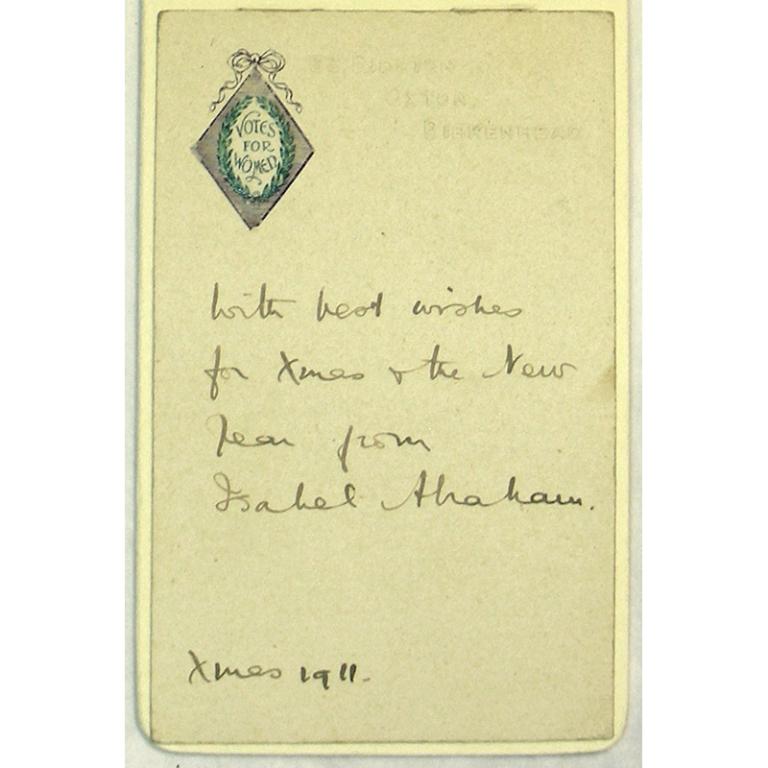 VOTES
FOR
WOMEN
OXTON,
BIRKENHEAD
With best wishes
for Xmas & the New
Year from
Isabel Abraham.
Xmas 1911.